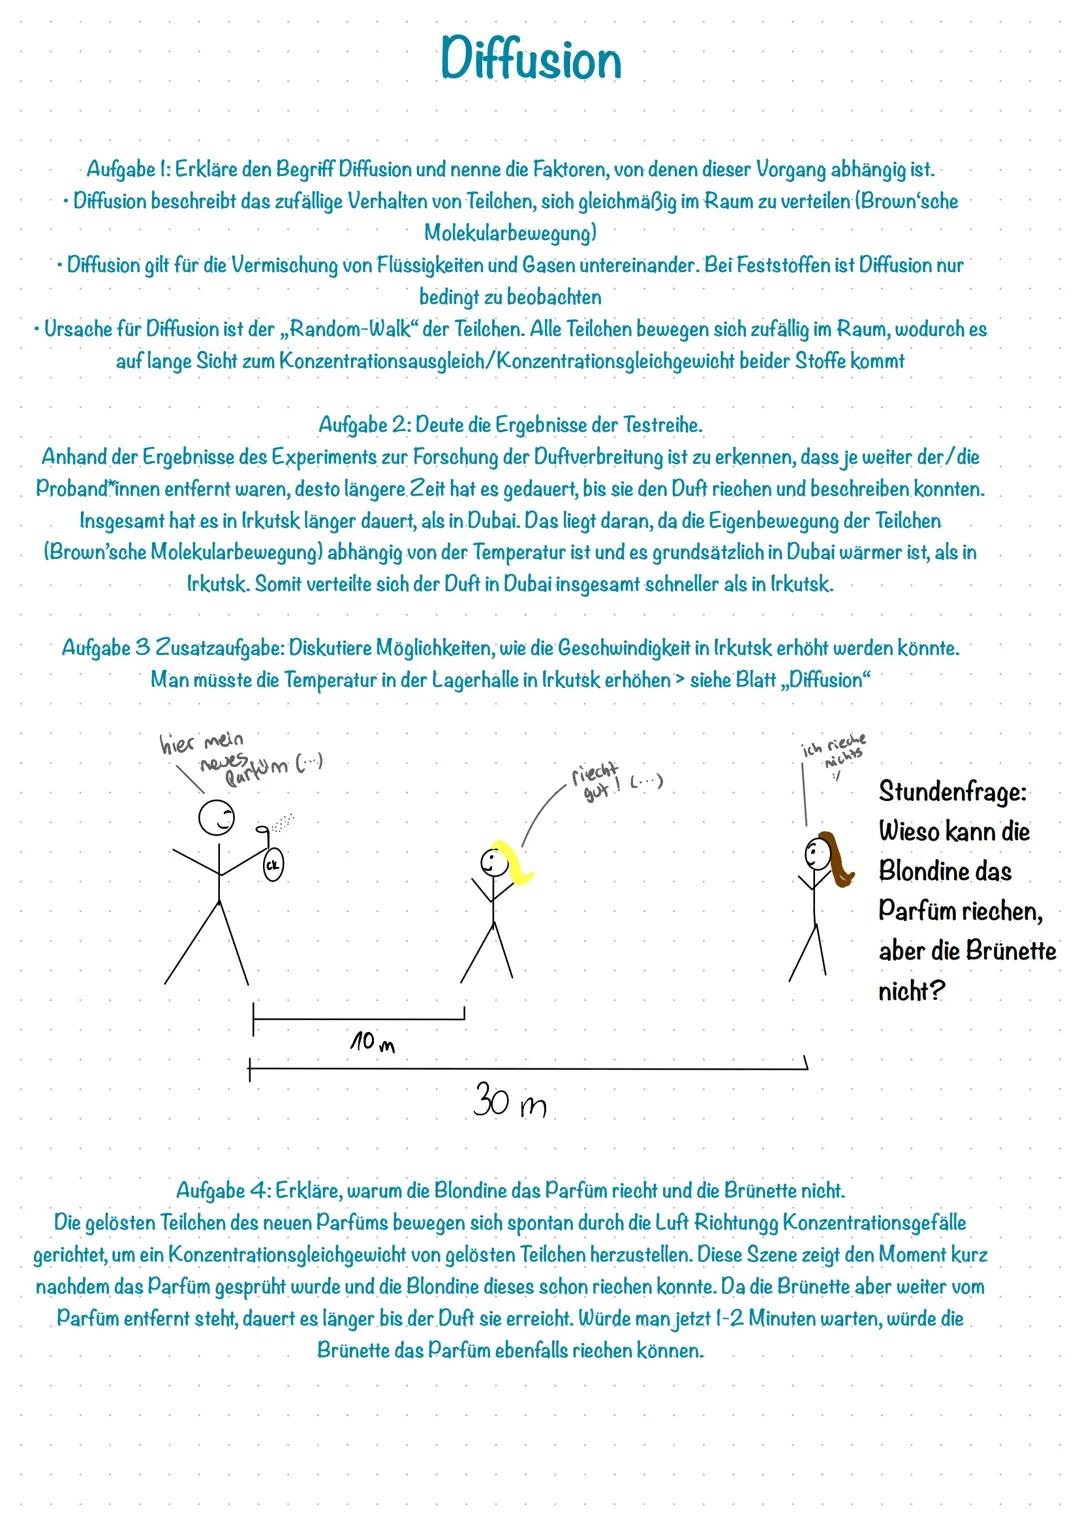 Diffusion
Aufgabe 1: Erkläre den Begriff Diffusion und nenne die Faktoren, von denen dieser Vorgang abhängig ist.
• Diffusion beschreibt das zufällige Verhalten von Teilchen, sich gleichmäßig im Raum zu verteilen (Brown‘sche
Molekularbewegung)
• Diffusion gilt für die Vermischung von Flüssigkeiten und Gasen untereinander. Bei Feststoffen ist Diffusion nur
bedingt zu beobachten
• Ursache für Diffusion ist der „Random-Walk“ der Teilchen. Alle Teilchen bewegen sich zufällig im Raum, wodurch es
auf lange Sicht zum Konzentrationsausgleich/Konzentrationsgleichgewicht beider Stoffe kommt
Aufgabe 2: Deute die Ergebnisse der Testreihe.
Anhand der Ergebnisse des Experiments zur Forschung der Duftverbreitung ist zu erkennen, dass je weiter der/die
Proband*innen entfernt waren, desto längere Zeit hat es gedauert, bis sie den Duft riechen und beschreiben konnten.
Insgesamt hat es in Irkutsk länger dauert, als in Dubai. Das liegt daran, da die Eigenbewegung der Teilchen
(Brown’sche Molekularbewegung) abhängig von der Temperatur ist und es grundsätzlich in Dubai wärmer ist, als in
Irkutsk. Somit verteilte sich der Duft in Dubai insgesamt schneller als in Irkutsk.
Aufgabe 3 Zusatzaufgabe: Diskutiere Möglichkeiten, wie die Geschwindigkeit in Irkutsk erhöht werden könnte.
Man müsste die Temperatur in der Lagerhalle in Irkutsk erhöhen > siehe Blatt „Diffusion“
hier mein
neues
Parfüm (...)
riecht
gut! (...)
ich rieche
nichts
:/
CK
Stundenfrage:
Wieso kann die
Blondine das
Parfüm riechen,
aber die Brünette
nicht?
10 m
30 m
Aufgabe 4: Erkläre, warum die Blondine das Parfüm riecht und die Brünette nicht.
Die gelösten Teilchen des neuen Parfüms bewegen sich spontan durch die Luft Richtungg Konzentrationsgefälle
gerichtet, um ein Konzentrationsgleichgewicht von gelösten Teilchen herzustellen. Diese Szene zeigt den Moment kurz
nachdem das Parfüm gesprüht wurde und die Blondine dieses schon riechen konnte. Da die Brünette aber weiter vom
Parfüm entfernt steht, dauert es länger bis der Duft sie erreicht. Würde man jetzt 1-2 Minuten warten, würde die
Brünette das Parfüm ebenfalls riechen können.